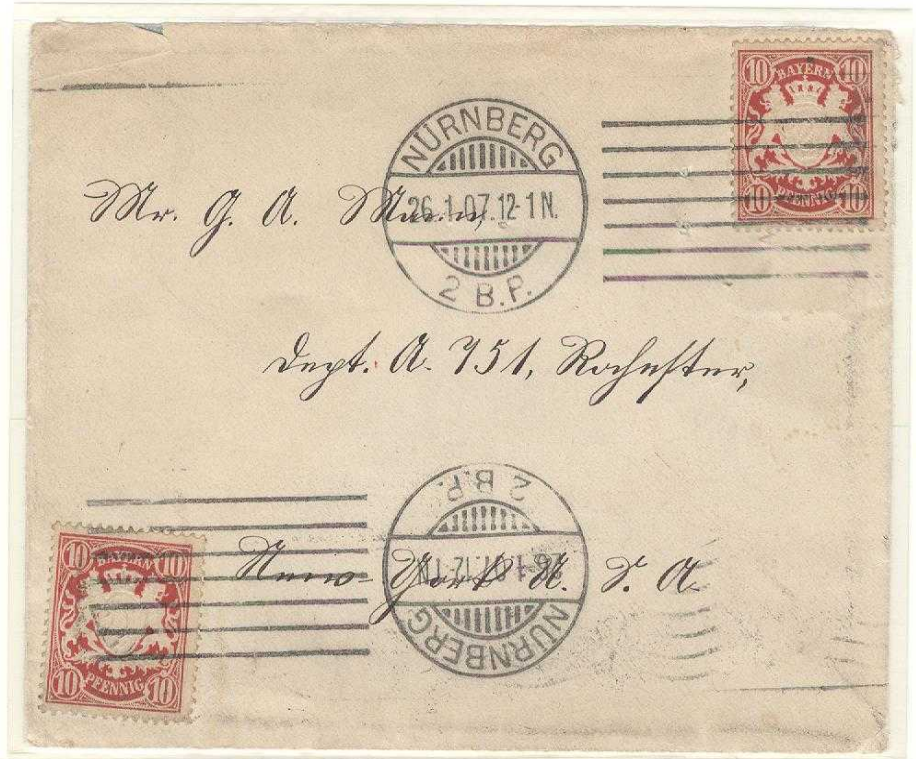 10 BAYERN 10
10 PFENNIG 10
NÜRNBERG
26.1.07.12-1N.
2 B.P.
Mr. G. A. Mann,
Dept. A. 751, Rochester,
New-York U. S. A.
NÜRNBERG
26.1.07.12-1N.
2 B.P.
10 BAYERN 10
10 PFENNIG 10